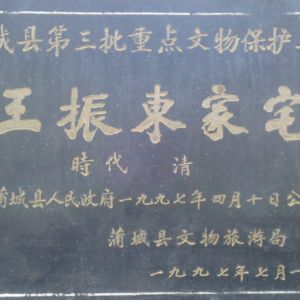 城县第三批重点文物保护
王振東家宅
時代 清
蒲城县人民政府一九九七年四月十日公
蒲城县文物旅游局
一九九七年七月一